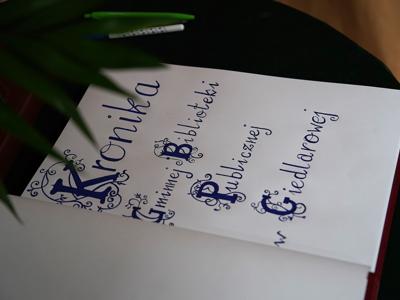 Kronika
Gminnej Biblioteki
Publicznej
w Giedlarowej